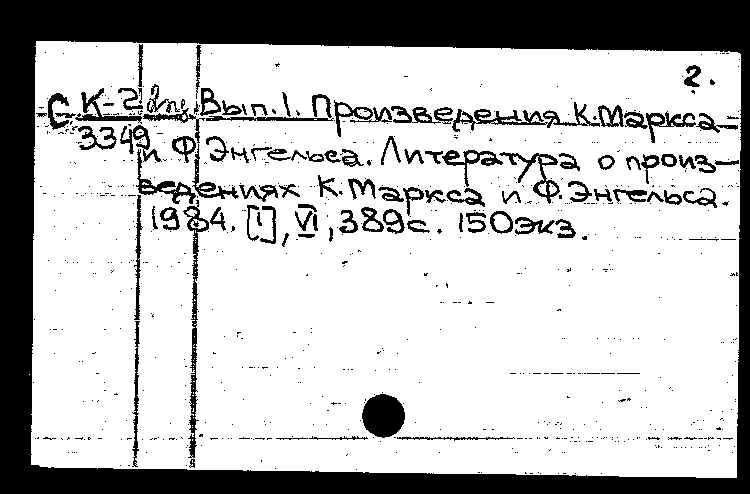 2.
С К-2 Вып.1. Произведения К.Маркса
3349 и Ф.Энгельса. Литература о произ-
ведениях К.Маркса и Ф.Энгельса.
1984. [I], VI, 389с. 150экз.